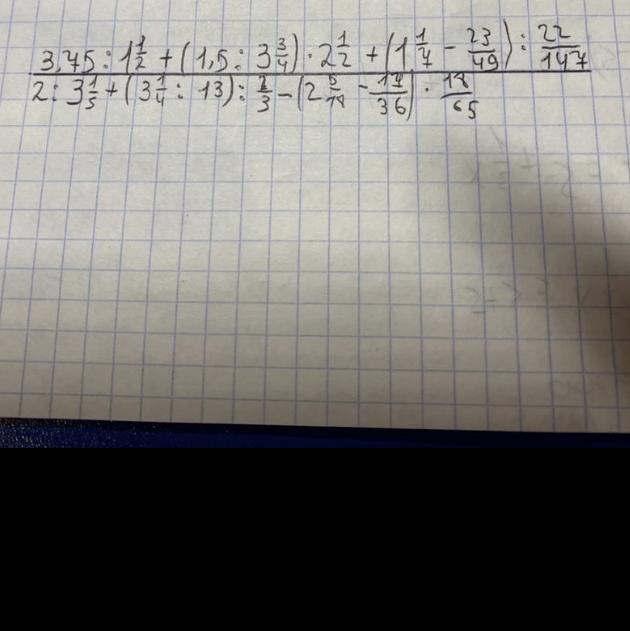 3,75 : 1 1/2 + (1,5 : 3 3/4) · 2 1/2 + (1 1/7 - 23/49) : 22/147
2 : 3 1/5 + (3 1/4 : 13) : 2/3 - (2 5/18 - 17/36) · 18/65